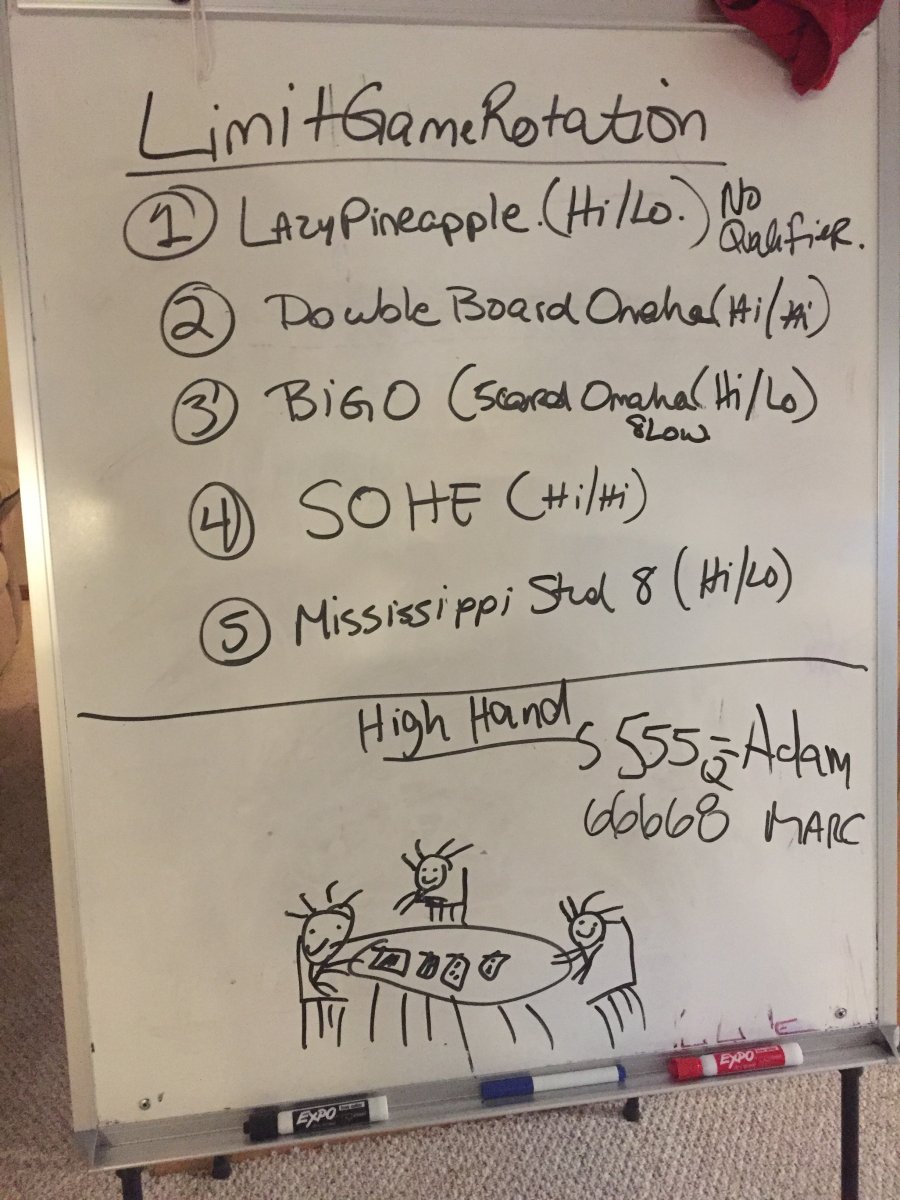 LimitGameRotation
1 LAzyPineapple. (Hi/Lo.) No Qualifier.
2 Double Board Omaha (Hi/Hi)
3 BiG O (5card Omaha (Hi/Lo)
8Low
4 SOHE (Hi/Hi)
5 Mississippi Stud 8 (Hi/Lo)
High Hand
5555 Adam
66668 MARC
EXPO
EXPO